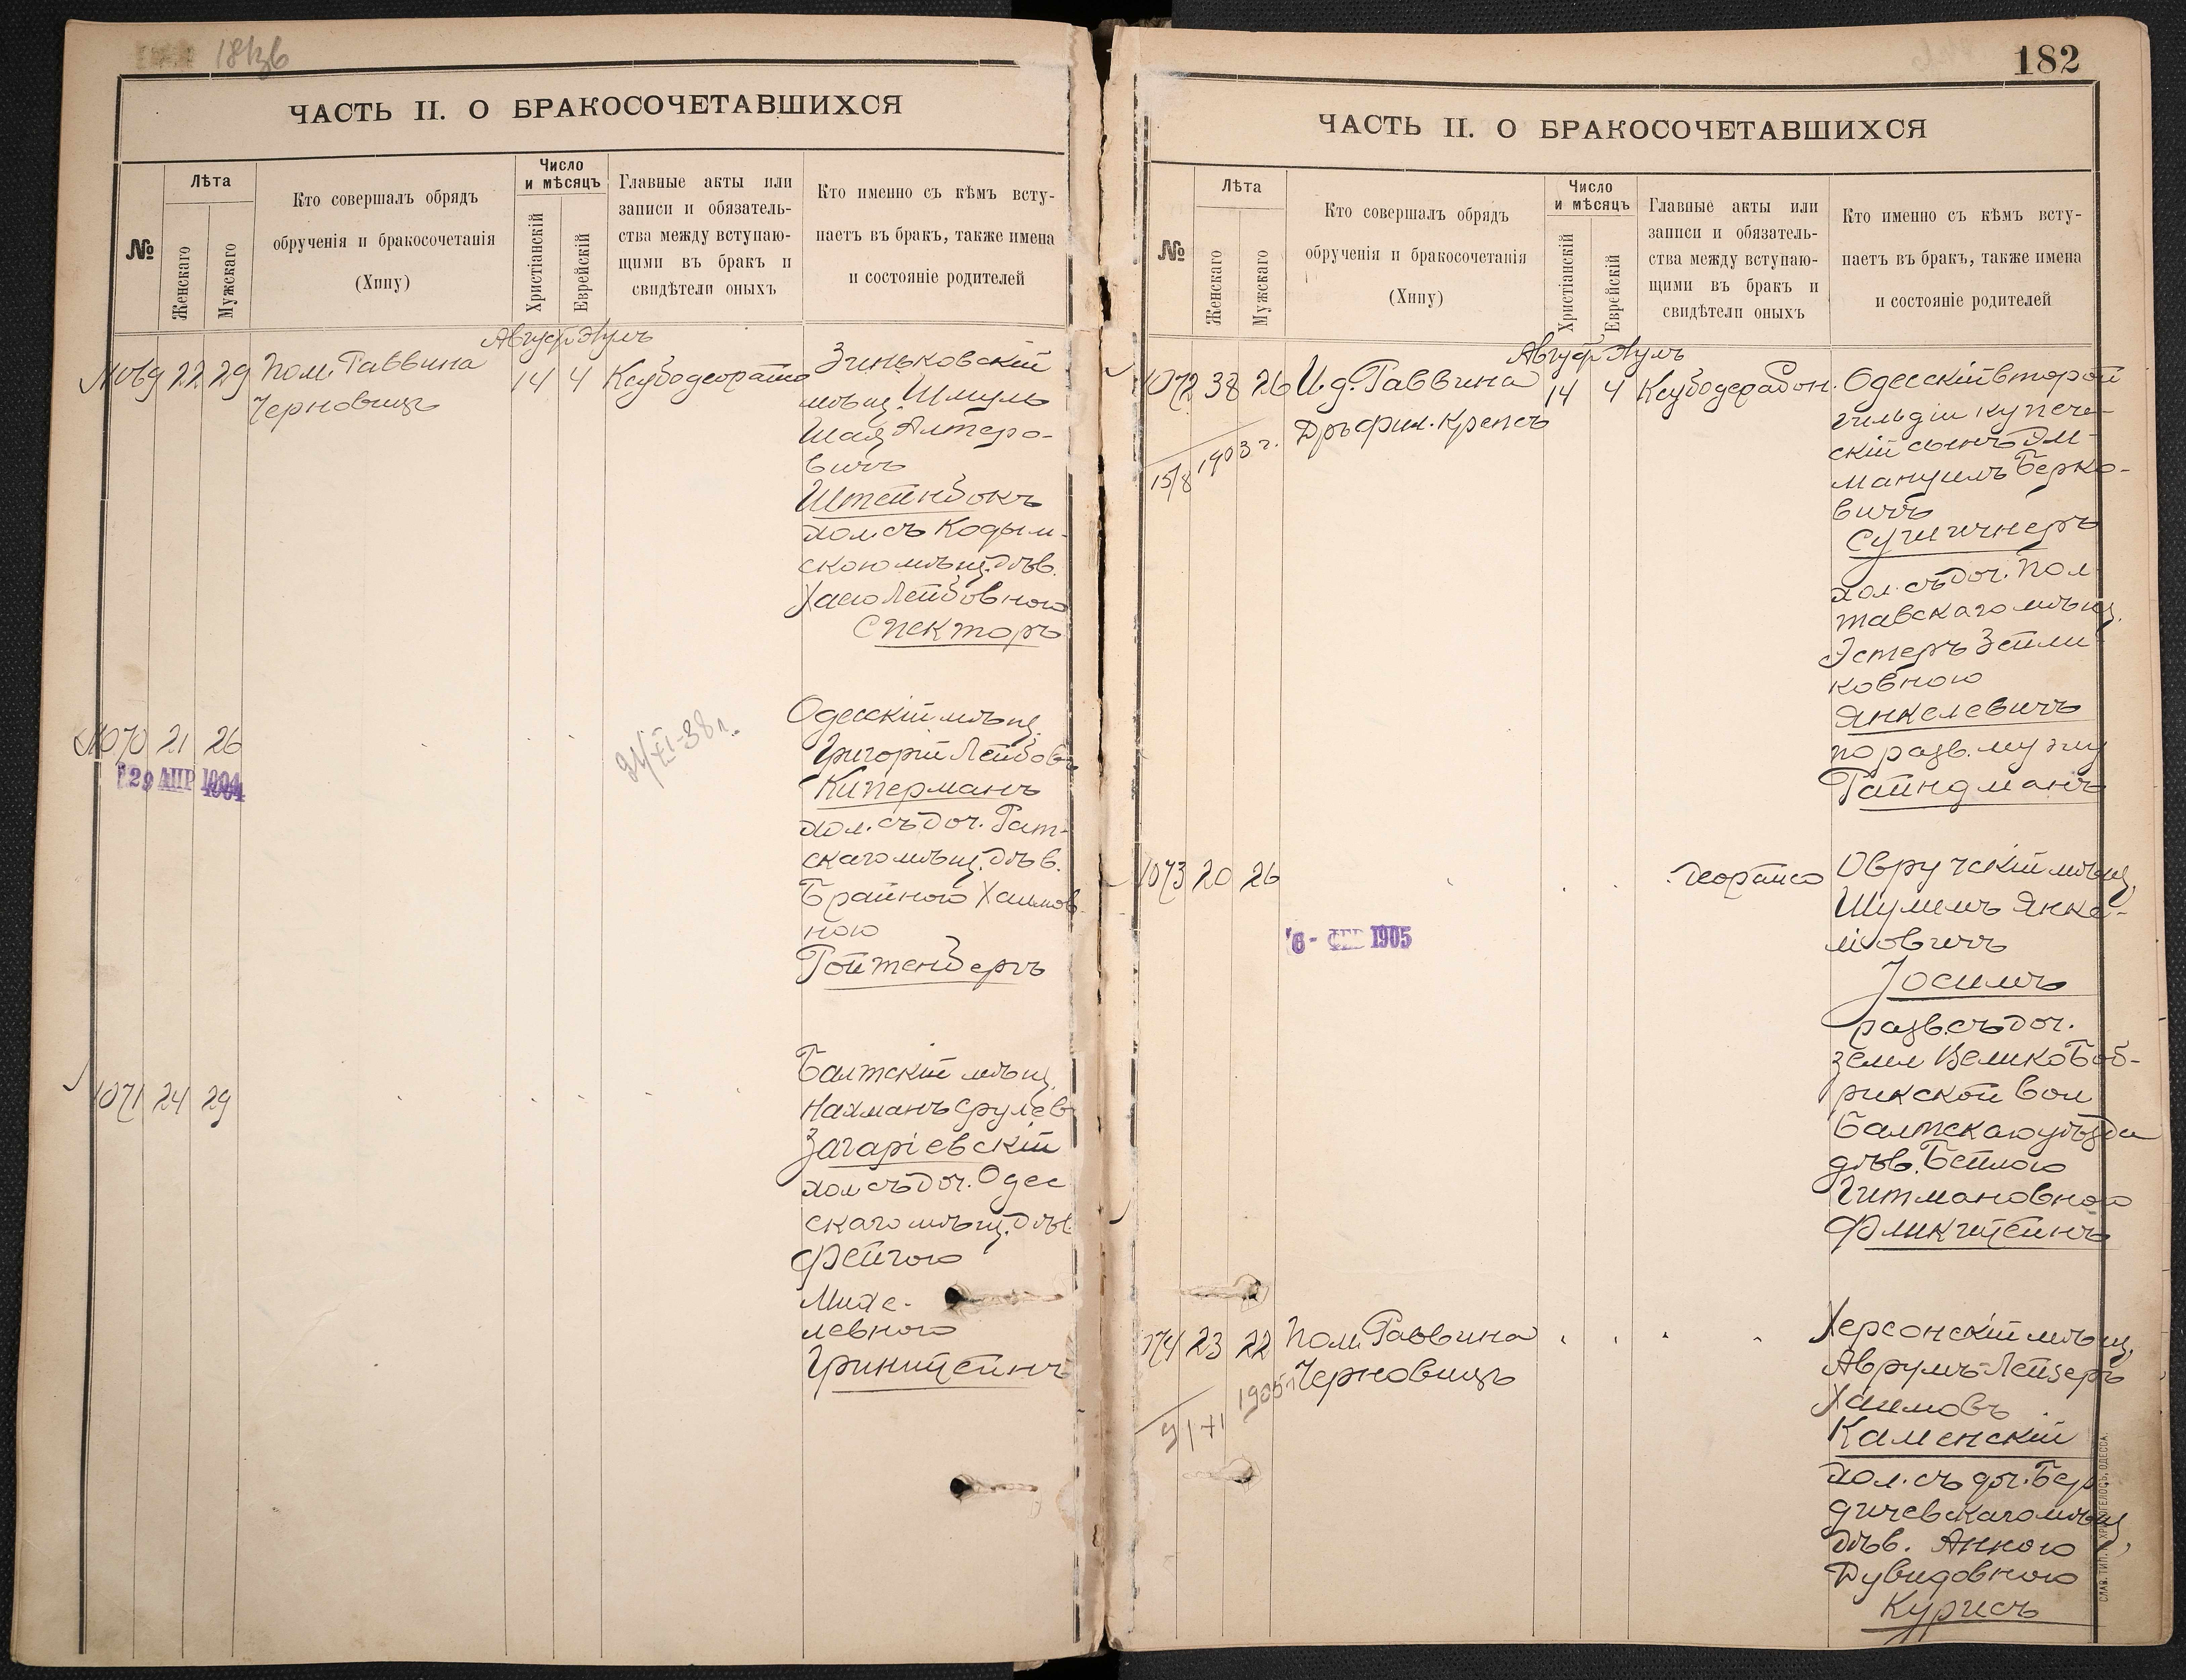 181зб
ЧАСТЬ II. О БРАКОСОЧЕТАВШИХСЯ
№
Лѣта
Женскаго
Мужскаго
Кто совершалъ обрядъ
обрученія и бракосочетанія
(Хипу)
Число
и мѣсяцъ
Христіанскій
Еврейскій
Главные акты или
записи и обязатель-
ства между вступаю-
щими въ бракъ и
свидѣтели оныхъ
Кто именно съ кѣмъ всту-
паетъ въ бракъ, также имена
и состояніе родителей
Авгус. Аулъ
1069 22 29 Пом. Раввина 14 4
Черновицъ
Зиньковскій
мѣщ. Шмуль
Шая Алтеро-
вичъ
Штейнбокъ
хол. съ Кодым-
скою мѣщ. дѣв.
Хаею Лейбовною
Спекторъ
1070 21 26
29 АПР 1904
21/XI-38 г.
Одесскій мѣщ.
Григорій Лейбов.
Киперманъ
хол. съ доч. Гат-
скаго мѣщ. дѣв.
Брайною Хаимов-
ною
Ройтенбергъ
1071 24 29
Балтскій мѣщ.
Нахманъ Срулев
Загаріевскій
хол. съ доч. Одес
скаго мѣщ. дѣв.
Фейгою
Михе-
левною
Гринштейнъ
182
ЧАСТЬ II. О БРАКОСОЧЕТАВШИХСЯ
№
Лѣта
Женскаго
Мужскаго
Кто совершалъ обрядъ
обрученія и бракосочетанія
(Хипу)
Число
и мѣсяцъ
Христіанскій
Еврейскій
Главные акты или
записи и обязатель-
ства между вступаю-
щими въ бракъ и
свидѣтели оныхъ
Кто именно съ кѣмъ всту-
паетъ въ бракъ, также имена
и состояніе родителей
Авгус. Аулъ
1072 38 26 И.д. Раввина 14 4
Дръ фил. Крепсъ
15/8 1903 г.
Одесскій второй
гильдіи купече-
скій сынъ Эм-
мануилъ Берко-
вичъ
хол. съ доч. Пол
тавскаго мѣщ.
Эстеръ Зейли
ковною
Янкелевичъ
по разв. мужу
Райндманъ
1073 20 26
6 - ФЕВ 1905
Овручскій мѣщ.
Шулимъ Янке-
ліовичъ
Іосимъ
разв. съ доч.
земл Велико Боб-
рикской вол
Балтскаго уѣзда
дѣв. Бейлою
Гитмановною
Фликштейнъ
1074 23 22 Пом. Раввина
Черновицъ
1905
Херсонскій мѣщ.
Аврумъ-Лейзеръ
Хаимовъ
Каменскій
хол. съ доч. Бер
дичевскаго мѣщ.
дѣв. Анною
Дувидовною
Курисъ
СЛАВ. ТИП. Н. ХРИСОГЕЛОСЪ, ОДЕССА.